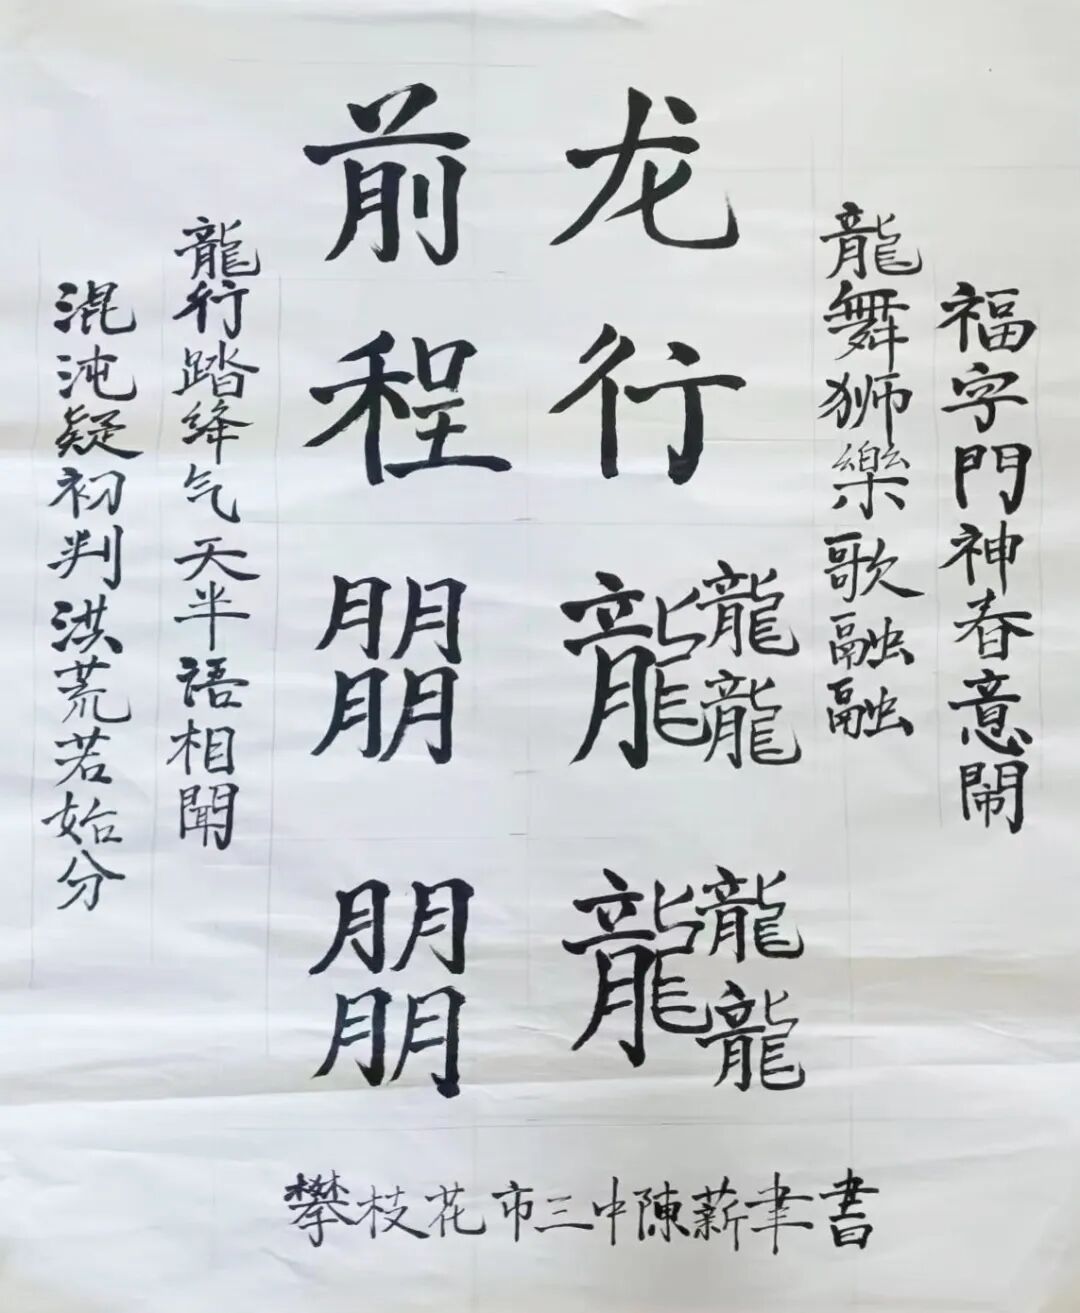 福字門神春意鬧
龍舞狮樂歌融融
龙行龘龘
前程朤朤
龍行踏绛气天半語相聞
混沌疑初判洪荒若始分
攀枝花市三中陳薪聿書